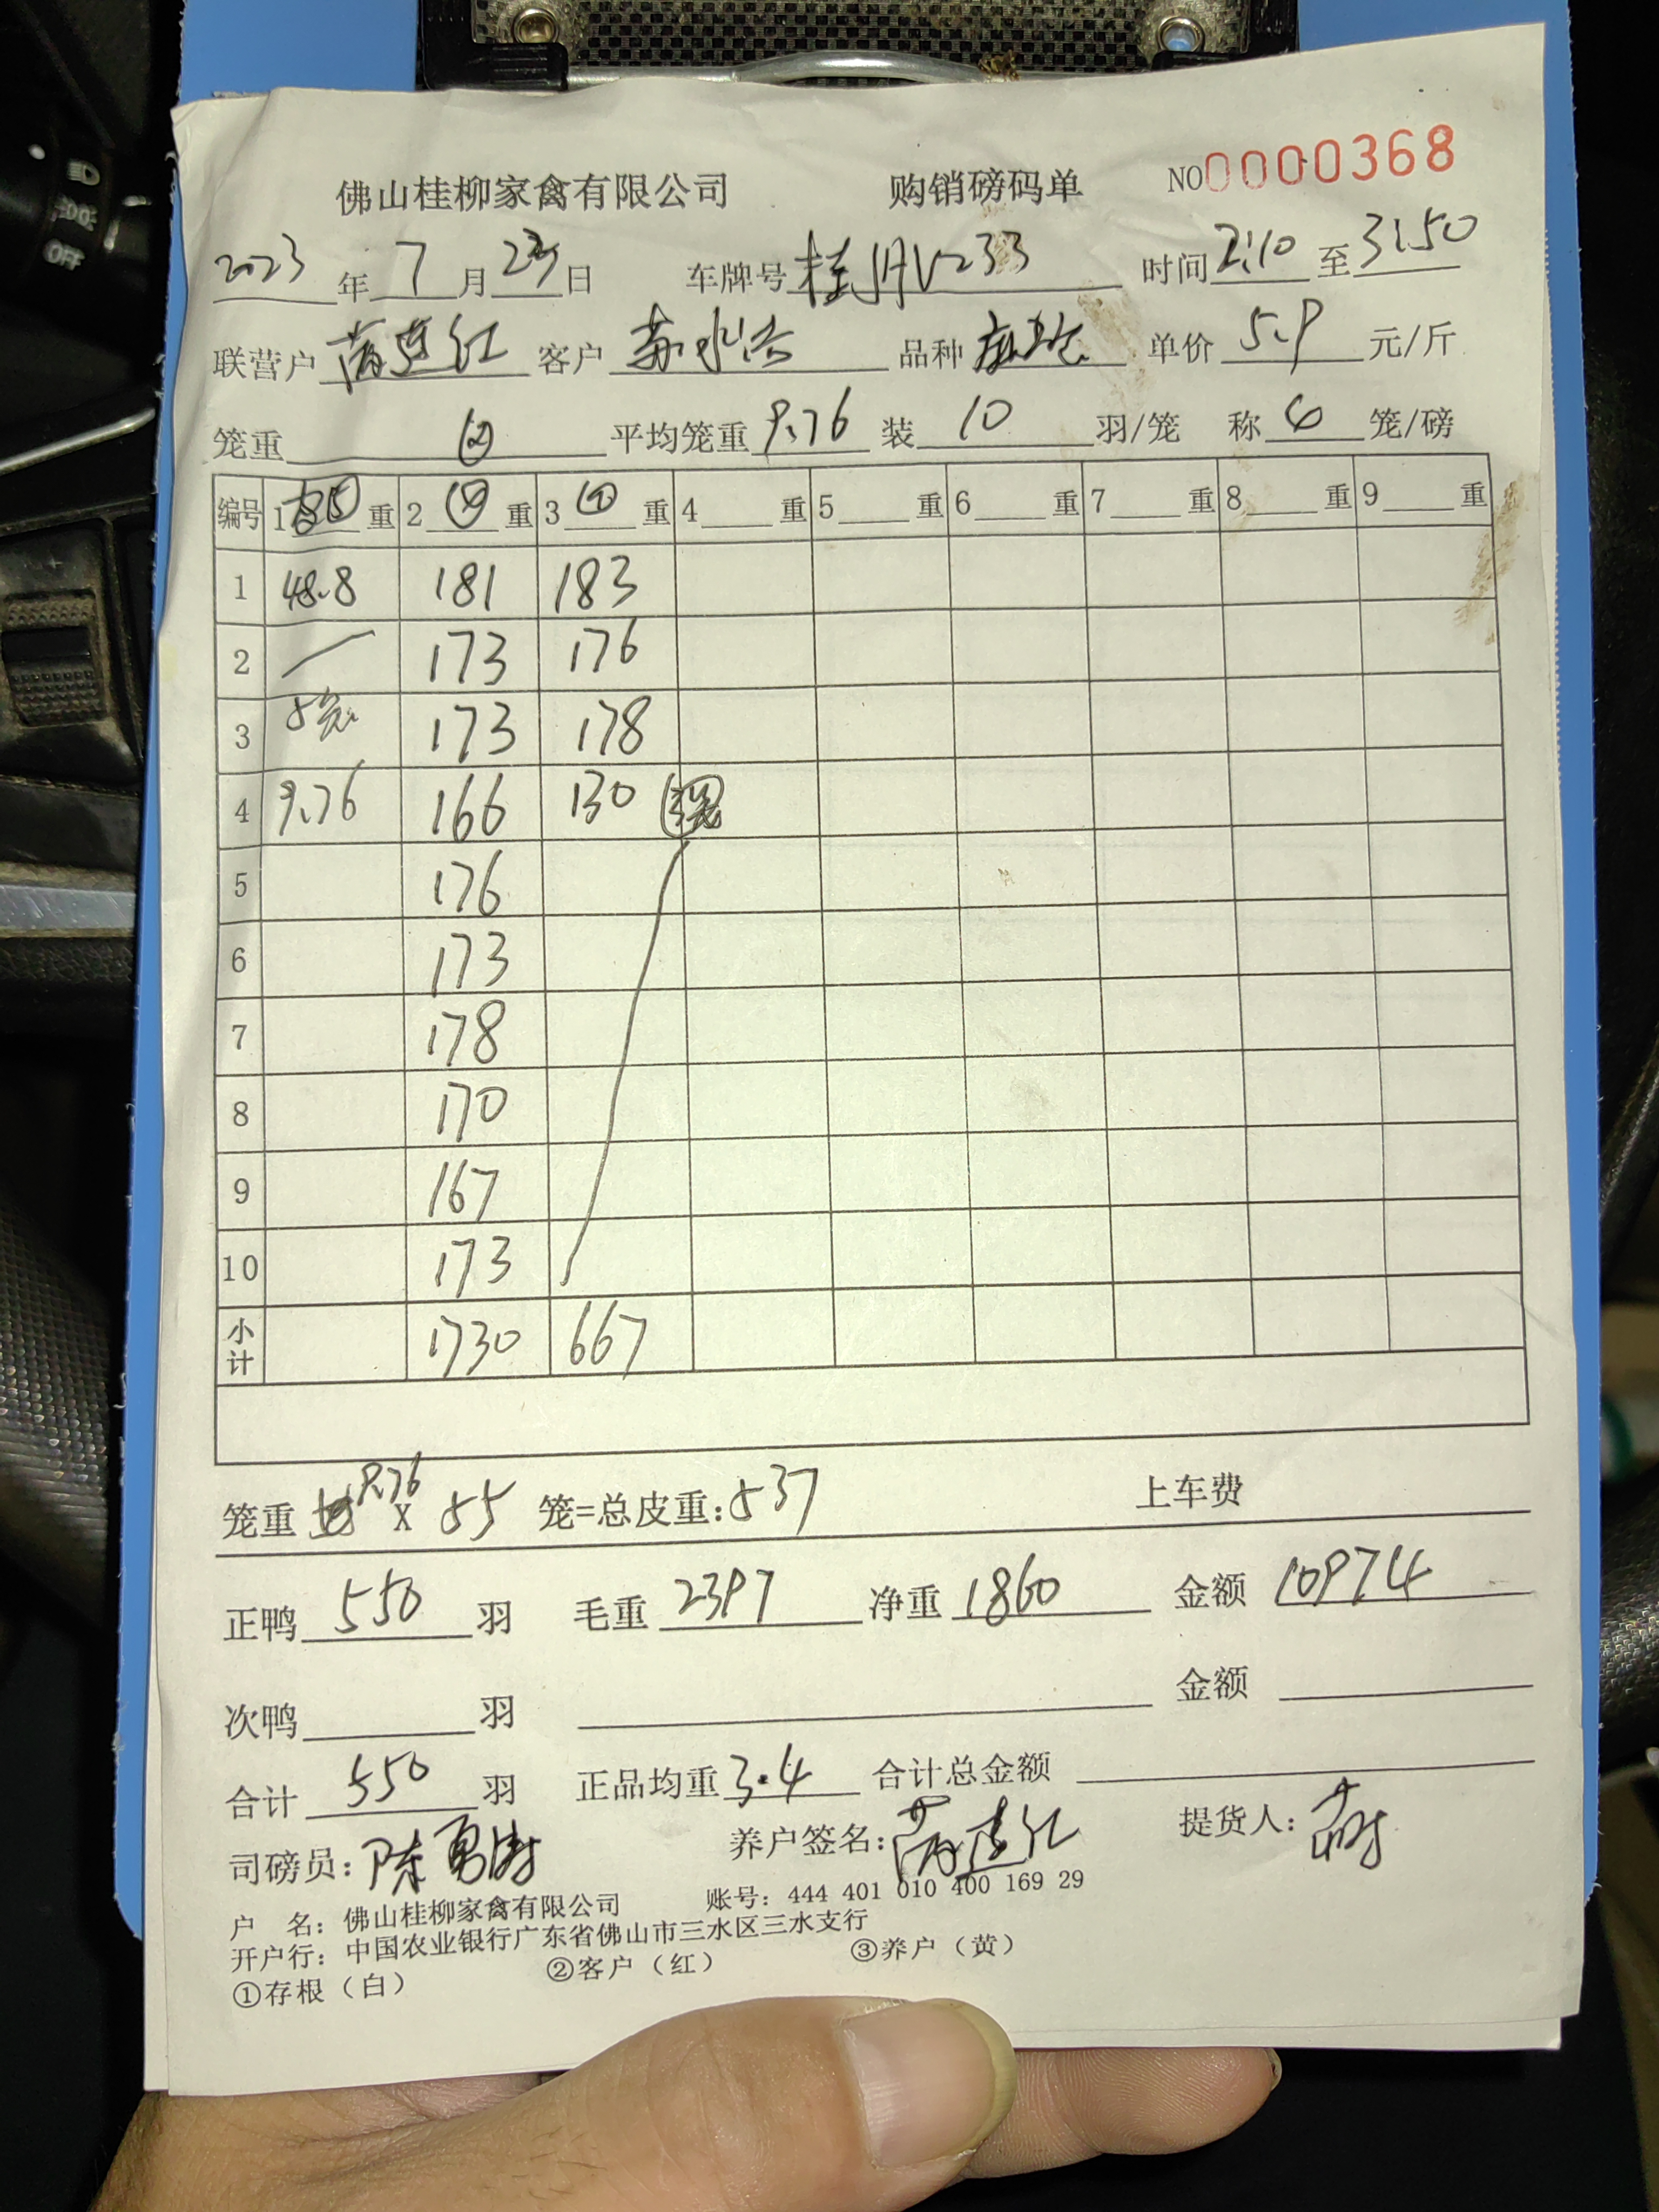 佛山桂柳家禽有限公司 购销磅码单 NO0000368
2023年7月23日 车牌号桂 时间2:10至3:50
联营户 客户 品种 单价5.9元/斤
笼重④ 平均笼重9.76 装10羽/笼 称4笼/磅
编号 1重 2④重 3④重 4重 5重 6重 7重 8重 9重
1 48.8 181 183
2 173 176
3 5笼 173 178
4 9.76 166 130
5 176
6 173
7 178
8 170
9 167
10 173
小计 1730 667
笼重9.76X55笼=总皮重:537 上车费
正鸭550羽 毛重2397 净重1860 金额10974
次鸭羽 金额
合计550羽 正品均重3.4 合计总金额
司磅员:陈勇 养户签名: 提货人:
户 名:佛山桂柳家禽有限公司 账号:444 401 010 400 169 29
开户行:中国农业银行广东省佛山市三水区三水支行
①存根(白) ②客户(红) ③养户(黄)